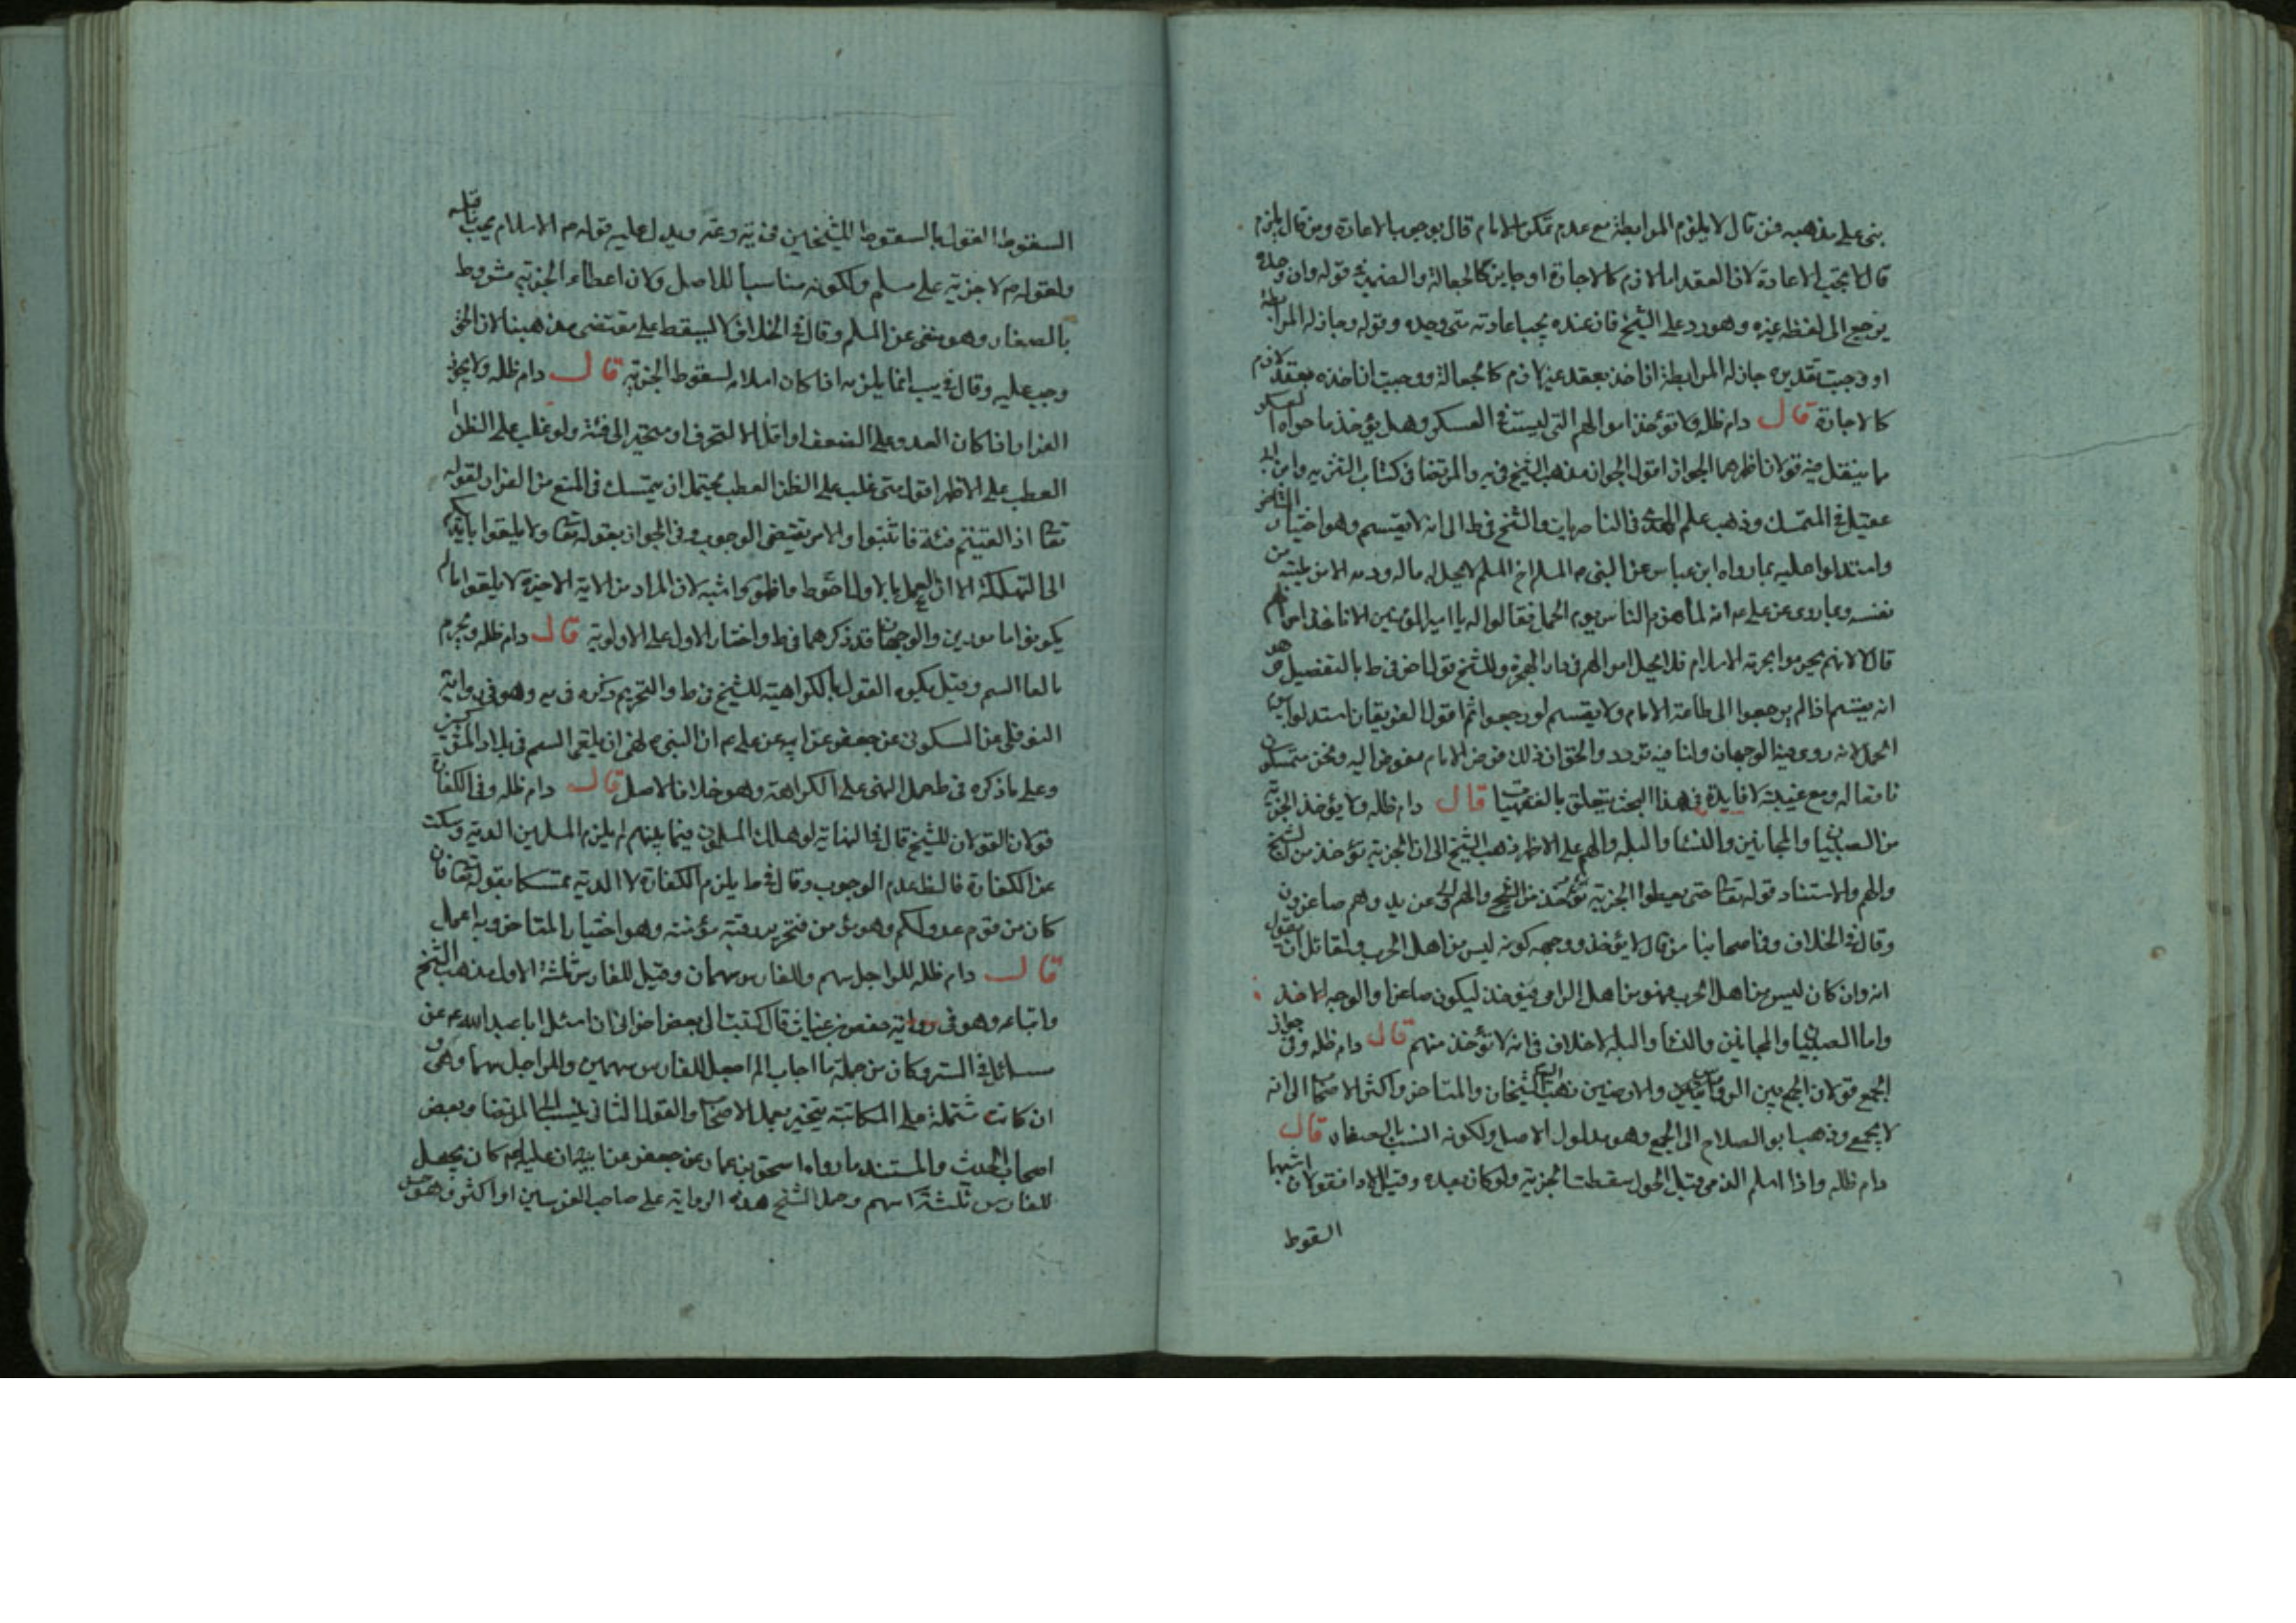 بنى على مذهبه فمن قال لا يلزم المرابطة مع عدم تمكن الامام قال بوجوب الاعادة ومن قال يلزم
قال لا يجب الاعادة لان العقد اما لازم كالاجارة او جايز كالجعالة والضمير في قوله وان وجده
يرجع الى لفظه غيره وهو رد على الشيخ فان عنده يجب اعادته متى وجده وقوله وجاز له المرابطة
او وجبت تقديره جاز له المرابطة ان اخذ بعقد غير لازم كالجعالة ووجبت ان اخذه بعقد لازم
كالاجارة قال دام ظله ولا تؤخذ اموالهم التي ليست في العسكر وهل يؤخذ ما حواه العسكر
ما ينقل فيه قولان اظهرهما الجواز اقول الجواز مذهب الشيخ في يه والمرتضا في كتاب التنزيه وابن ابي
عقيل في المتمسك وذهب علم الهدى في الناصريات والشيخ في ط الى انه لا يقسم وهو اختيار المتاخر
واستدلوا عليه بما رواه ابن عباس عن النبي ص المسلم اخ المسلم لا يحل له ماله ودمه الا من طيبة من
نفسه وبما روى عن علي ع انه لما هزم الناس يوم الجمل فقالوا له يا امير المؤمنين الا ناخذ اموالهم
قال لا لانهم يحرموا بحرمة الاسلام فلا يحل اموالهم في دار الهجرة وللشيخ قول اخر في ط بالتفصيل وهو
انه يقسم اذا لم يرجعوا الى طاعة الامام ولا يقسم لو رجعوا ثم اقول الفريقان استدلوا بسيرة
الجمل لانه روى فيه الوجهان ولنا فيه تردد والحق ان ذلك فرض الامام مفوض اليه ونحن متمسكون
نا مقاله ومع غيبته لا فايدة في هذا البحث يتعلق بالفقهيات قال دام ظله ولا يؤخذ الجزية
من الصبيان والمجانين والنساء والبله والهم على الاظهر ذهب الشيخ الى ان الجزية تؤخذ من الشيخ
والهم والاستناد قوله تعالى حتى يعطوا الجزية تؤخذ من الشيخ والهم الى عن يد وهم صاغرون
وقال في الخلاف وفي اصحابنا من قال لا يؤخذ ووجهه كونه ليس من اهل الحرب ولقائل ان يقول
انه وان كان ليس من اهل الحرب فهو من اهل الراى فيؤخذ ليكون صاغرا والوجه الاخذ
واما الصبيان والمجانين والنساء والبله لا خلاف في انه لا تؤخذ منهم قال دام ظله وفي جواز
الجمع قولان الجمع بين الروس والارضين ذهب الشيخان والمتاخر واكثر الاصحاب الى انه
لا يجمع وذهب ابو الصلاح الى الجمع وهو مدلول الاصل ولكونه انسب بالصغار قال
دام ظله واذا اسلم الذمي قبل الحول سقطت الجزية ولو كان بعده وقبل الادا فقولان اشبهما
السقوط
السقوط القول بالسقوط للشيخين في يه وعه ويدل عليه قوله ص الاسلام يجب ما قبله
ولقوله ص لا جزية على مسلم ولكونه مناسبا للاصل ولان اعطاء الجزية مشروط
بالصغار وهو منفى عن المسلم وقال في الخلاف لا يسقط على مقتضى مذهبنا لان الحق
وجب عليه وقال في يب انما يلزمه اذا كان اسلامه لسقوط الجزية قال دام ظله ولا يجوز
الفرار اذا كان العدو على الضعف او اقل الا لتحرف او متحيز الى فئة ولو غلب على الظن
العطب على الاظهر اقول متى غلب على الظن العطب يحتمل ان يتمسك في المنع من الفرار لقوله
تعالى اذا لقيتم فئة فاثبتوا والامر يقتضى الوجوب وفي الجواز بقوله تعالى ولا تلقوا بايديكم
الى التهلكة الا ان العمل بالاول احوط واظهر واشبه لان المراد من الاية الاخيرة لا يلقوا ما لم
يكونوا مامورين والوجهان قد ذكرهما في ط واختار الاول على الاولوية قال دام ظله ويحرم
بالقا السم وقيل يكره القول بالكراهية للشيخ في ط والتحريم ذكره في يه وهو في رواية
النوفلي عن السكوني عن جعفر عن ابيه عن علي ع ان النبي ص نهى ان يلقى السم في بلاد المشركين
وعلى ما ذكره في ط حمل النهى على الكراهة وهو خلاف الاصل قال دام ظله وفي الكفارة
قولان القولان للشيخ قال في النهاية لو هلك المسلمون فيما بينهم لم يلزم المسلمين الدية وسكت
عن الكفارة فالظ عدم الوجوب وقال في ط يلزم الكفارة لا الدية تمسكا بقوله تعالى فان
كان من قوم عدو لكم وهو مؤمن فتحرير رقبة مؤمنة وهو اختيار المتاخر وبه اعمل
قال دام ظله للراجل سهم وللفارس سهمان وقيل للفارس ثلثة الاول مذهب الشيخ
واتباعه وهو في رواية حفص بن غياث قال كتبت الى بعض اخوانى ان اسئل ابا عبد الله ع عن
مسائل في السير وكان من جملة ما اجاب الم اجعل للفارس سهمين وللراجل سهما وهى و
ان كانت مشتملة على المكاتبة يتخير بعمل الاصحاب والقول الثاني ينسب الى المرتضا وبعض
اصحاب الحديث والمستند ما رواه اسحق بن عمار عن جعفر عن ابيه ان عليا ع كان يجعل
للفارس ثلثة اسهم وحمل الشيخ هذه الرواية على صاحب الفرسين او اكثر وهو حمل